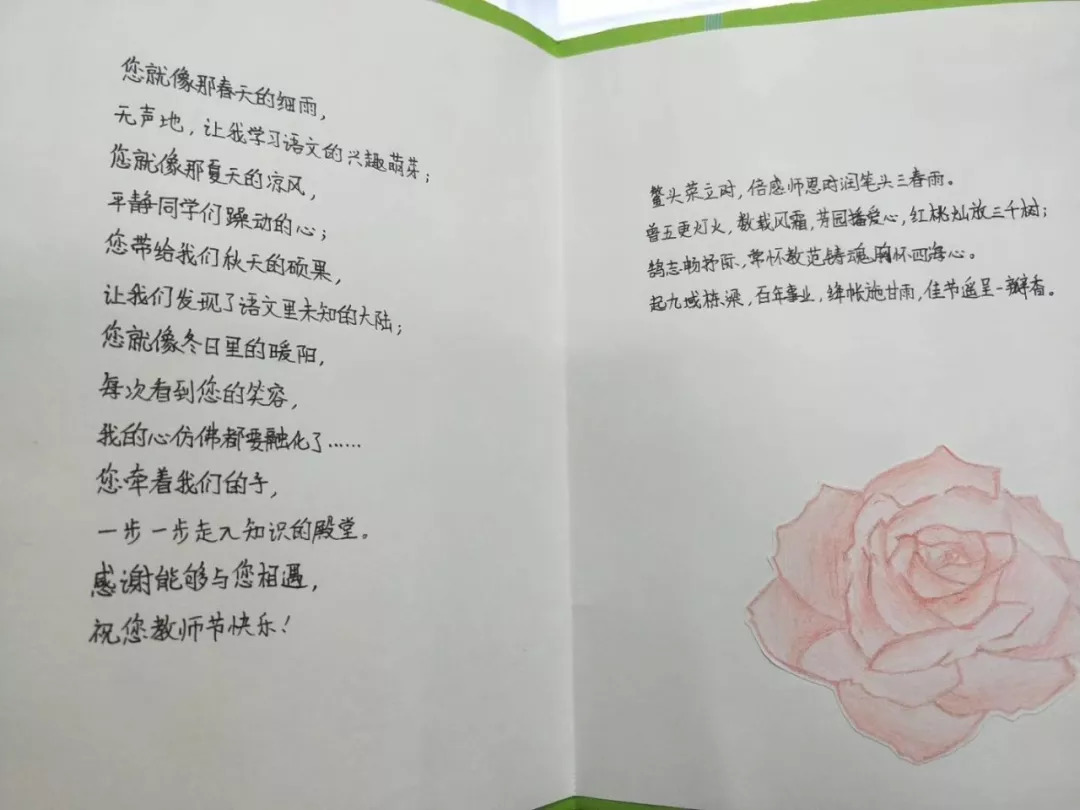 您就像那春天的细雨，
无声地，让我学习语文的兴趣萌芽；
您就像那夏天的凉风，
平静同学们躁动的心；
您带给我们秋天的硕果，
让我们发现了语文里未知的大陆；
您就像冬日里的暖阳，
每次看到您的笑容，
我的心仿佛都要融化了……
您牵着我们的手，
一步一步走入知识的殿堂。
感谢能够与您相遇，
祝您教师节快乐！
鳌头荣立时，倍感师恩时润笔头三春雨。
曾五更灯火，数载风霜，芳园播爱心，红桃灿放三千树；
鹄志畅抒际，常怀教范铸魂胸怀四海心。
起九域栋梁，百年事业，绛帐施甘雨，佳节遥呈一瓣香。